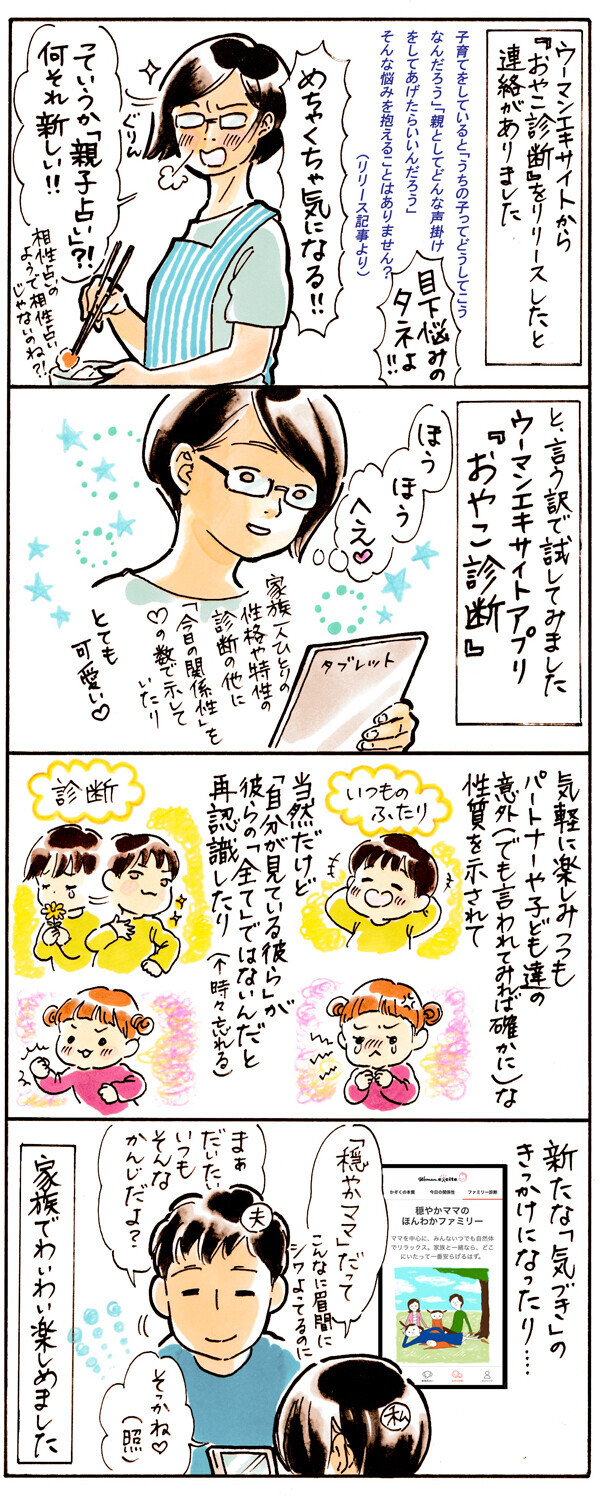 ウーマンエキサイトから
『おやこ診断』をリリースしたと
連絡がありました
子育てをしていると「うちの子ってどうしてこう
なんだろう」「親としてどんな声掛け
をしてあげたらいいんだろう」
そんな悩みを抱えることはありません?
(リリース記事より)
目下悩みの
タネよ!!
めちゃくちゃ気になる!!
ぐりん
っていうか「親子占い」?!
何それ新しい!!
相性占いの
ようで相性占い
じゃないのね?!
と、言う訳で試してみました
ウーマンエキサイトアプリ
『おやこ診断』
ほう
ほう
へえ♡
タブレット
家族一人ひとりの
性格や特性の
診断の他に
「今日の関係性」を
♡の数で示して
いたり
とても
可愛い♡
気軽に楽しみつつも
パートナーや子ども達の
意外(でも言われてみれば確かに)な
性質を示されて
いつもの
ふたり
当然だけど
「自分が見ている彼ら」が
彼らの「全て」ではないんだと
再認識したり(不時々忘れる)
診断
新たな「気づき」の
きっかけになったり……
Woman.excite
かぞくの本質
今日の関係性
ファミリー診断
穏やかママの
ほんわかファミリー
ママを中心に、みんないつでも自然体
でリラックス。家族と一緒なら、どこ
にいたって一番安らげるはず。
「穏やかママ」だって
こんなに眉間に
シワよってるのに
私
夫
まぁ
だいたい
いつも
そんな
かんじだよ?
そっかね♡
(照)
家族でわいわい楽しめました